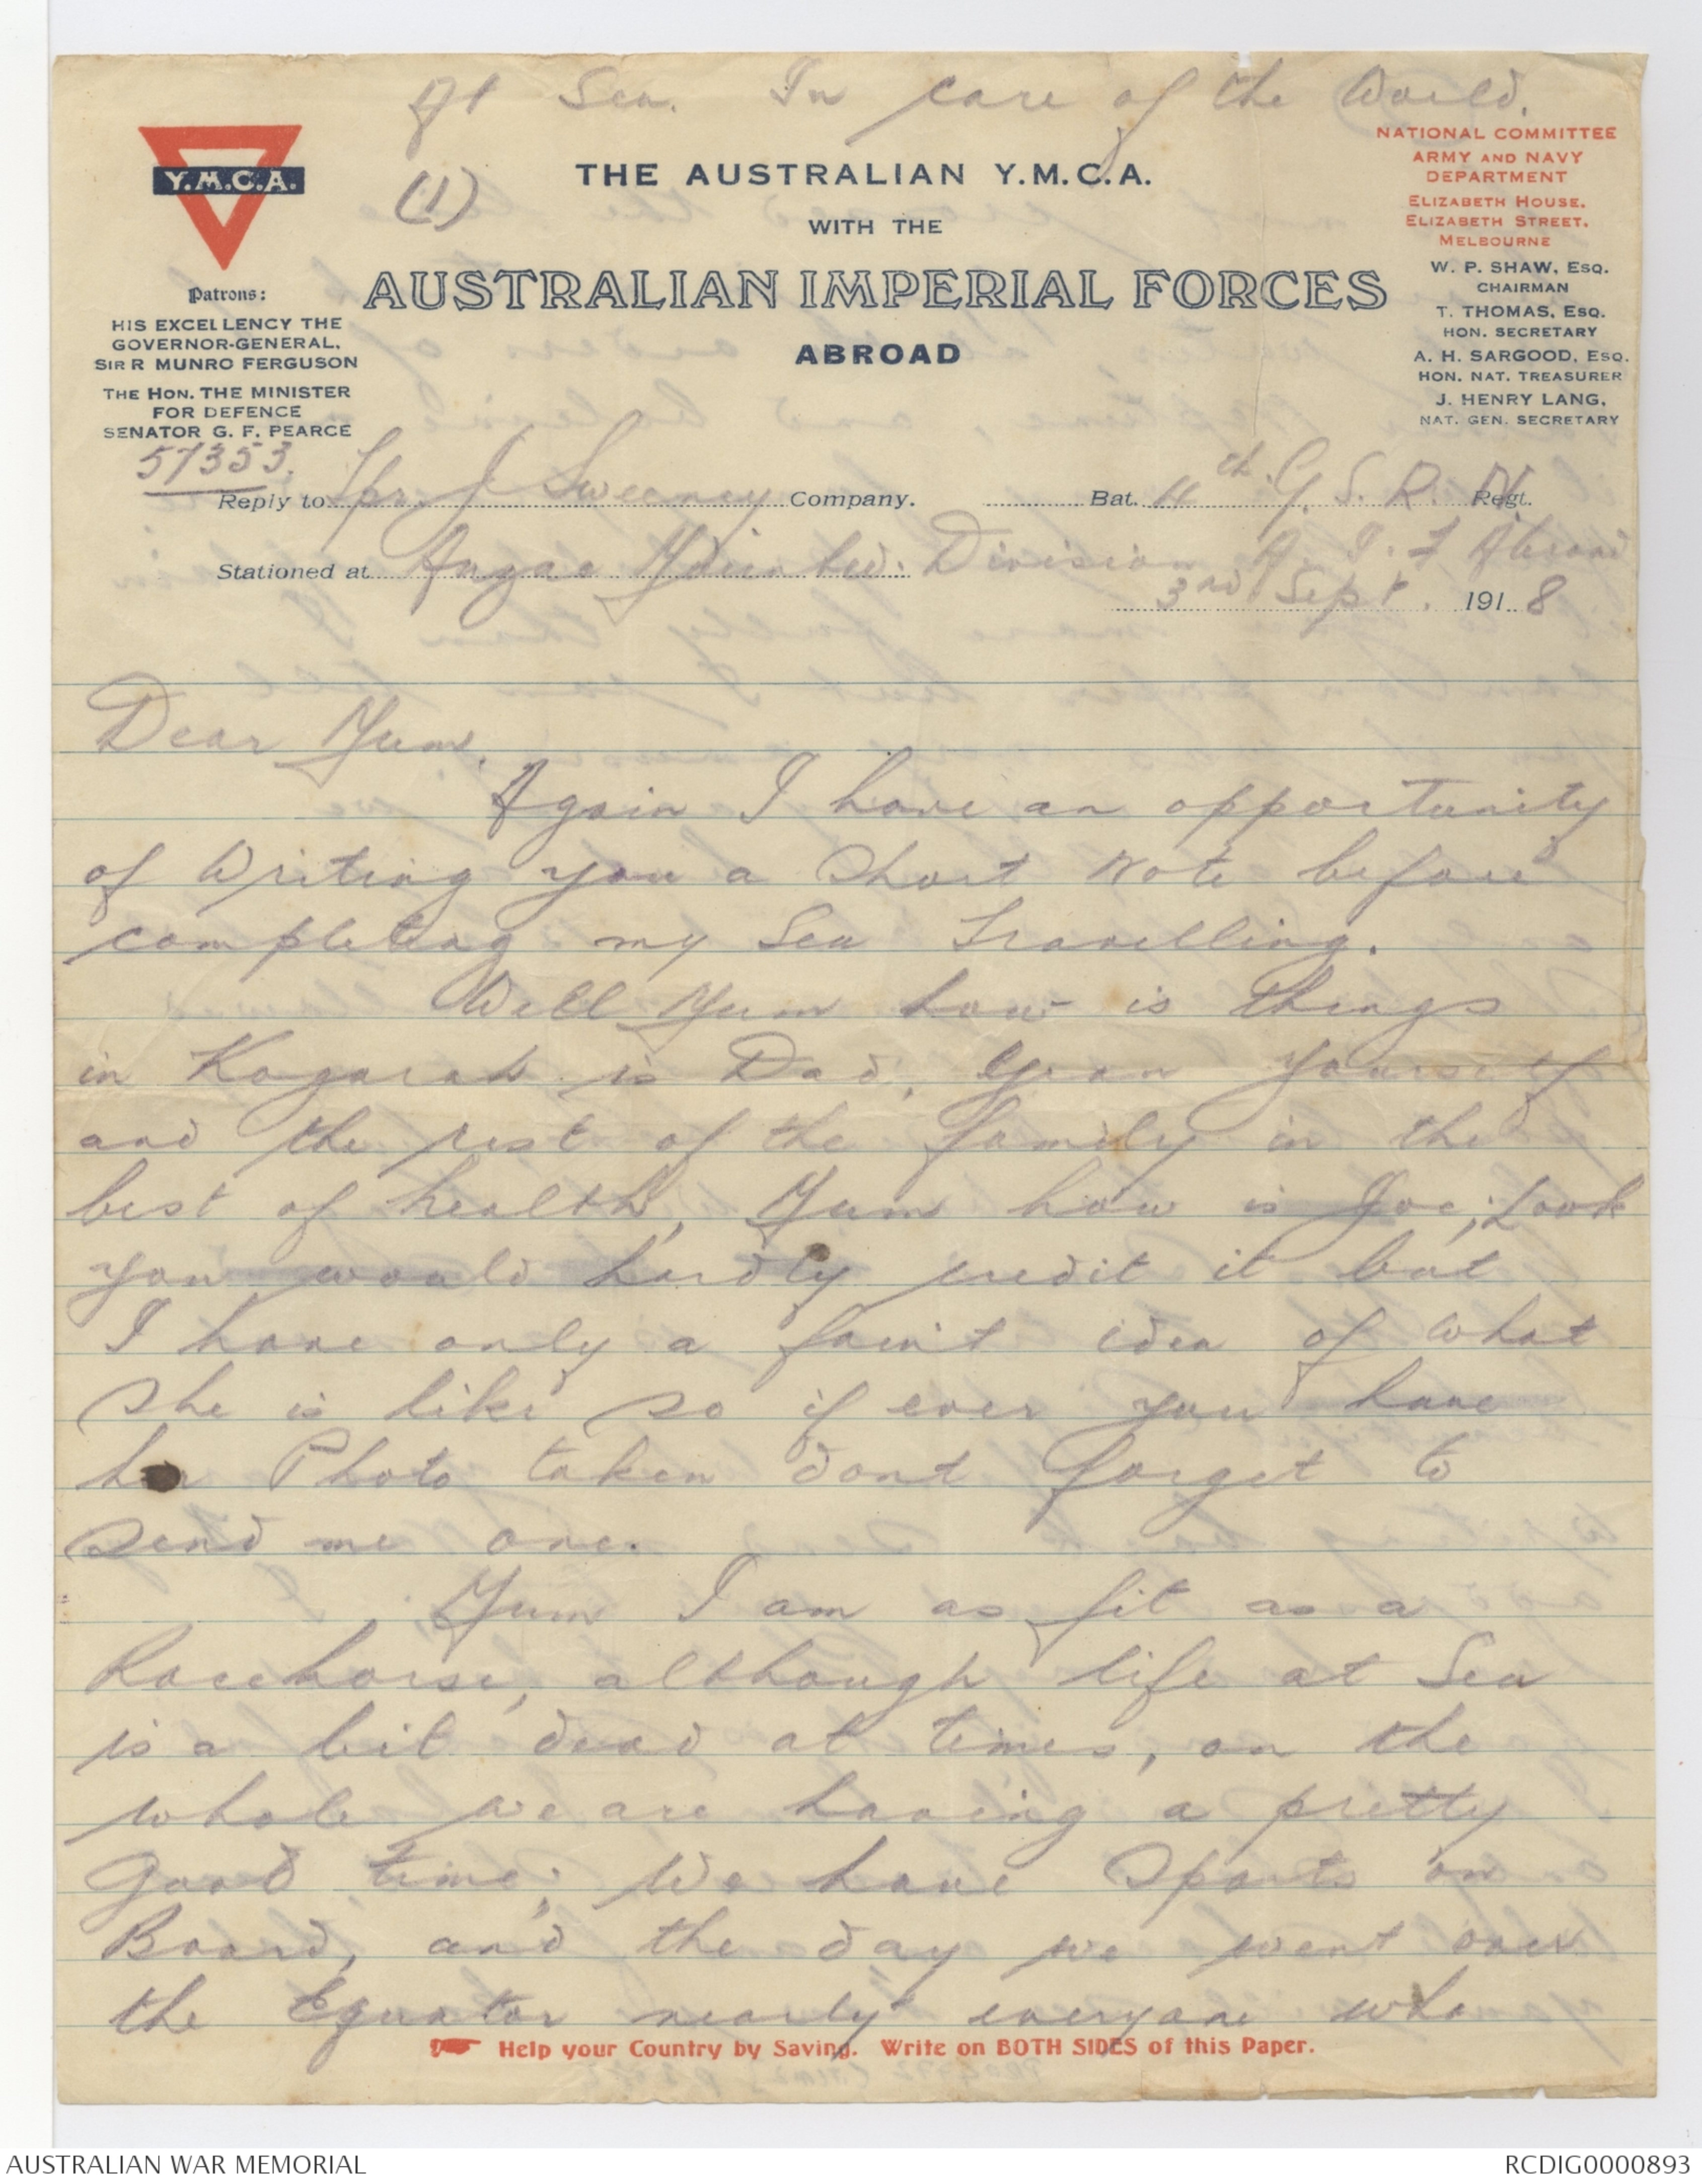 At Sea. In care of the World.
Y.M.C.A.
(1)
THE AUSTRALIAN Y.M.C.A.
WITH THE
AUSTRALIAN IMPERIAL FORCES
ABROAD
Patrons:
HIS EXCELLENCY THE
GOVERNOR-GENERAL,
SIR R MUNRO FERGUSON
THE HON. THE MINISTER
FOR DEFENCE
SENATOR G. F. PEARCE
NATIONAL COMMITTEE
ARMY AND NAVY
DEPARTMENT
ELIZABETH HOUSE,
ELIZABETH STREET,
MELBOURNE
W. P. SHAW, ESQ.
CHAIRMAN
T. THOMAS, ESQ.
HON. SECRETARY
A. H. SARGOOD, ESQ.
HON. NAT. TREASURER
J. HENRY LANG,
NAT. GEN. SECRETARY
57353.
Reply to Tpr. J Sweeney Company. Bat. 11th G. S. R. N. Regt.
Stationed at Anzac Mounted. Division A. I. F Abroad
3rd Sept. 1918
Dear Mum,
Again I have an opportunity
of Writing you a Short Note before
completing my Sea Travelling.
Well Mum how is things
in Kogarah is Dad, Gran Yourself
and the rest of the family in the
best of health, Mum how is Joe, Look
you would hardly credit it but
I have only a faint idea of what
she is like so if ever you have
her Photo taken dont forget to
send me one.
Mum I am as fit as a
Racehorse, although life at Sea
is a bit dead at times, on the
whole we are having a pretty
good time; We have Sports on
Board, and the day we went over
the Equator nearly everyone who
Help your Country by Saving. Write on BOTH SIDES of this Paper.
AUSTRALIAN WAR MEMORIAL
RCDIG0000893